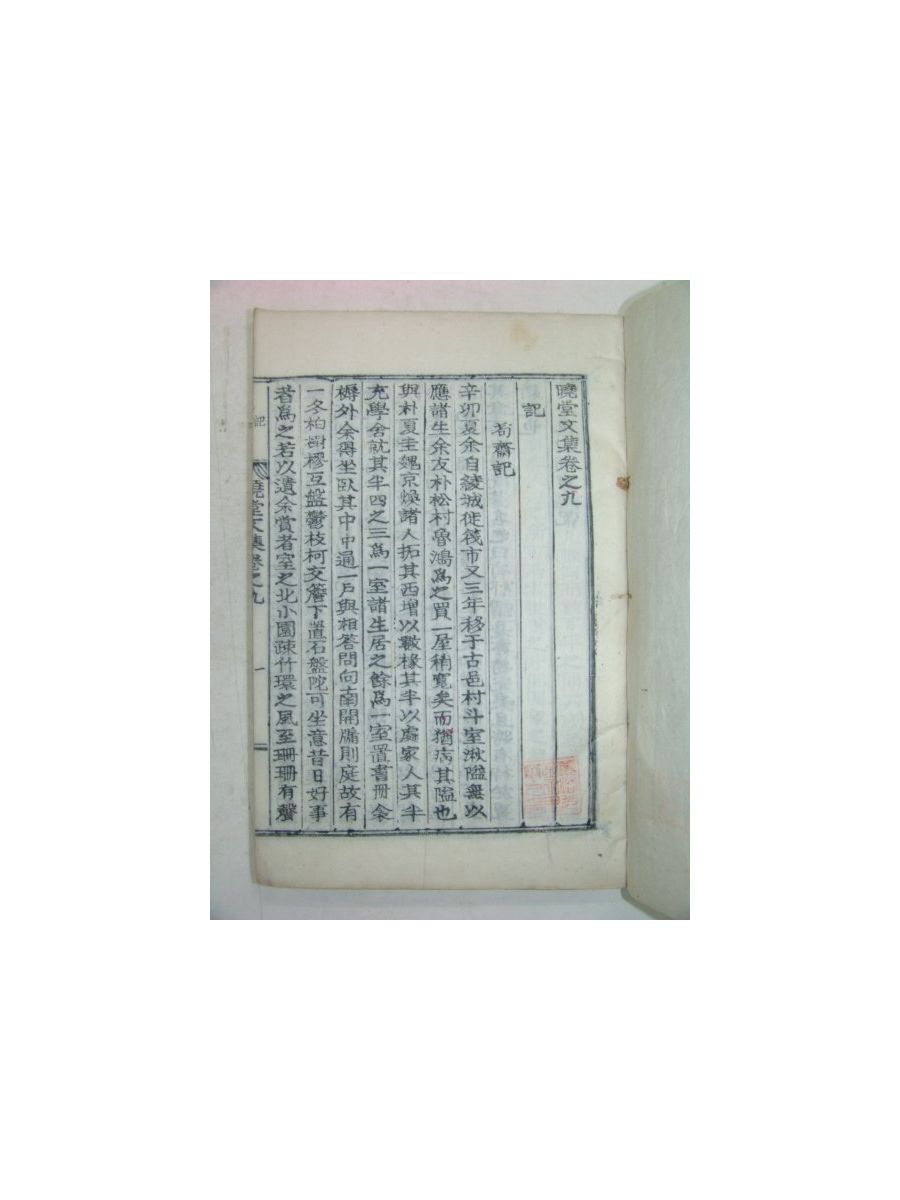 曉堂文集卷之九
記
苟齋記
辛卯夏余自綾城徙筏市又三年移于古邑村斗室湫隘無以
應諸生余友朴松村魯鴻爲之買一屋稍寬矣而猶病其隘也
與朴夏圭魏京煥諸人拓其西增以數椽其半以處家人其半
充學舍就其半四之三爲一室諸生居之餘爲一室置書冊余
槈外余得坐臥其中中通一戶與相答問向南開牖則庭故有
一冬柏樹樛互盤鬱枝柯交簷下置石盤陀可坐意昔日好事
者爲之若以遺余賞者室之北小園疎竹環之風至珊珊有聲
記
曉堂文集卷之九
一